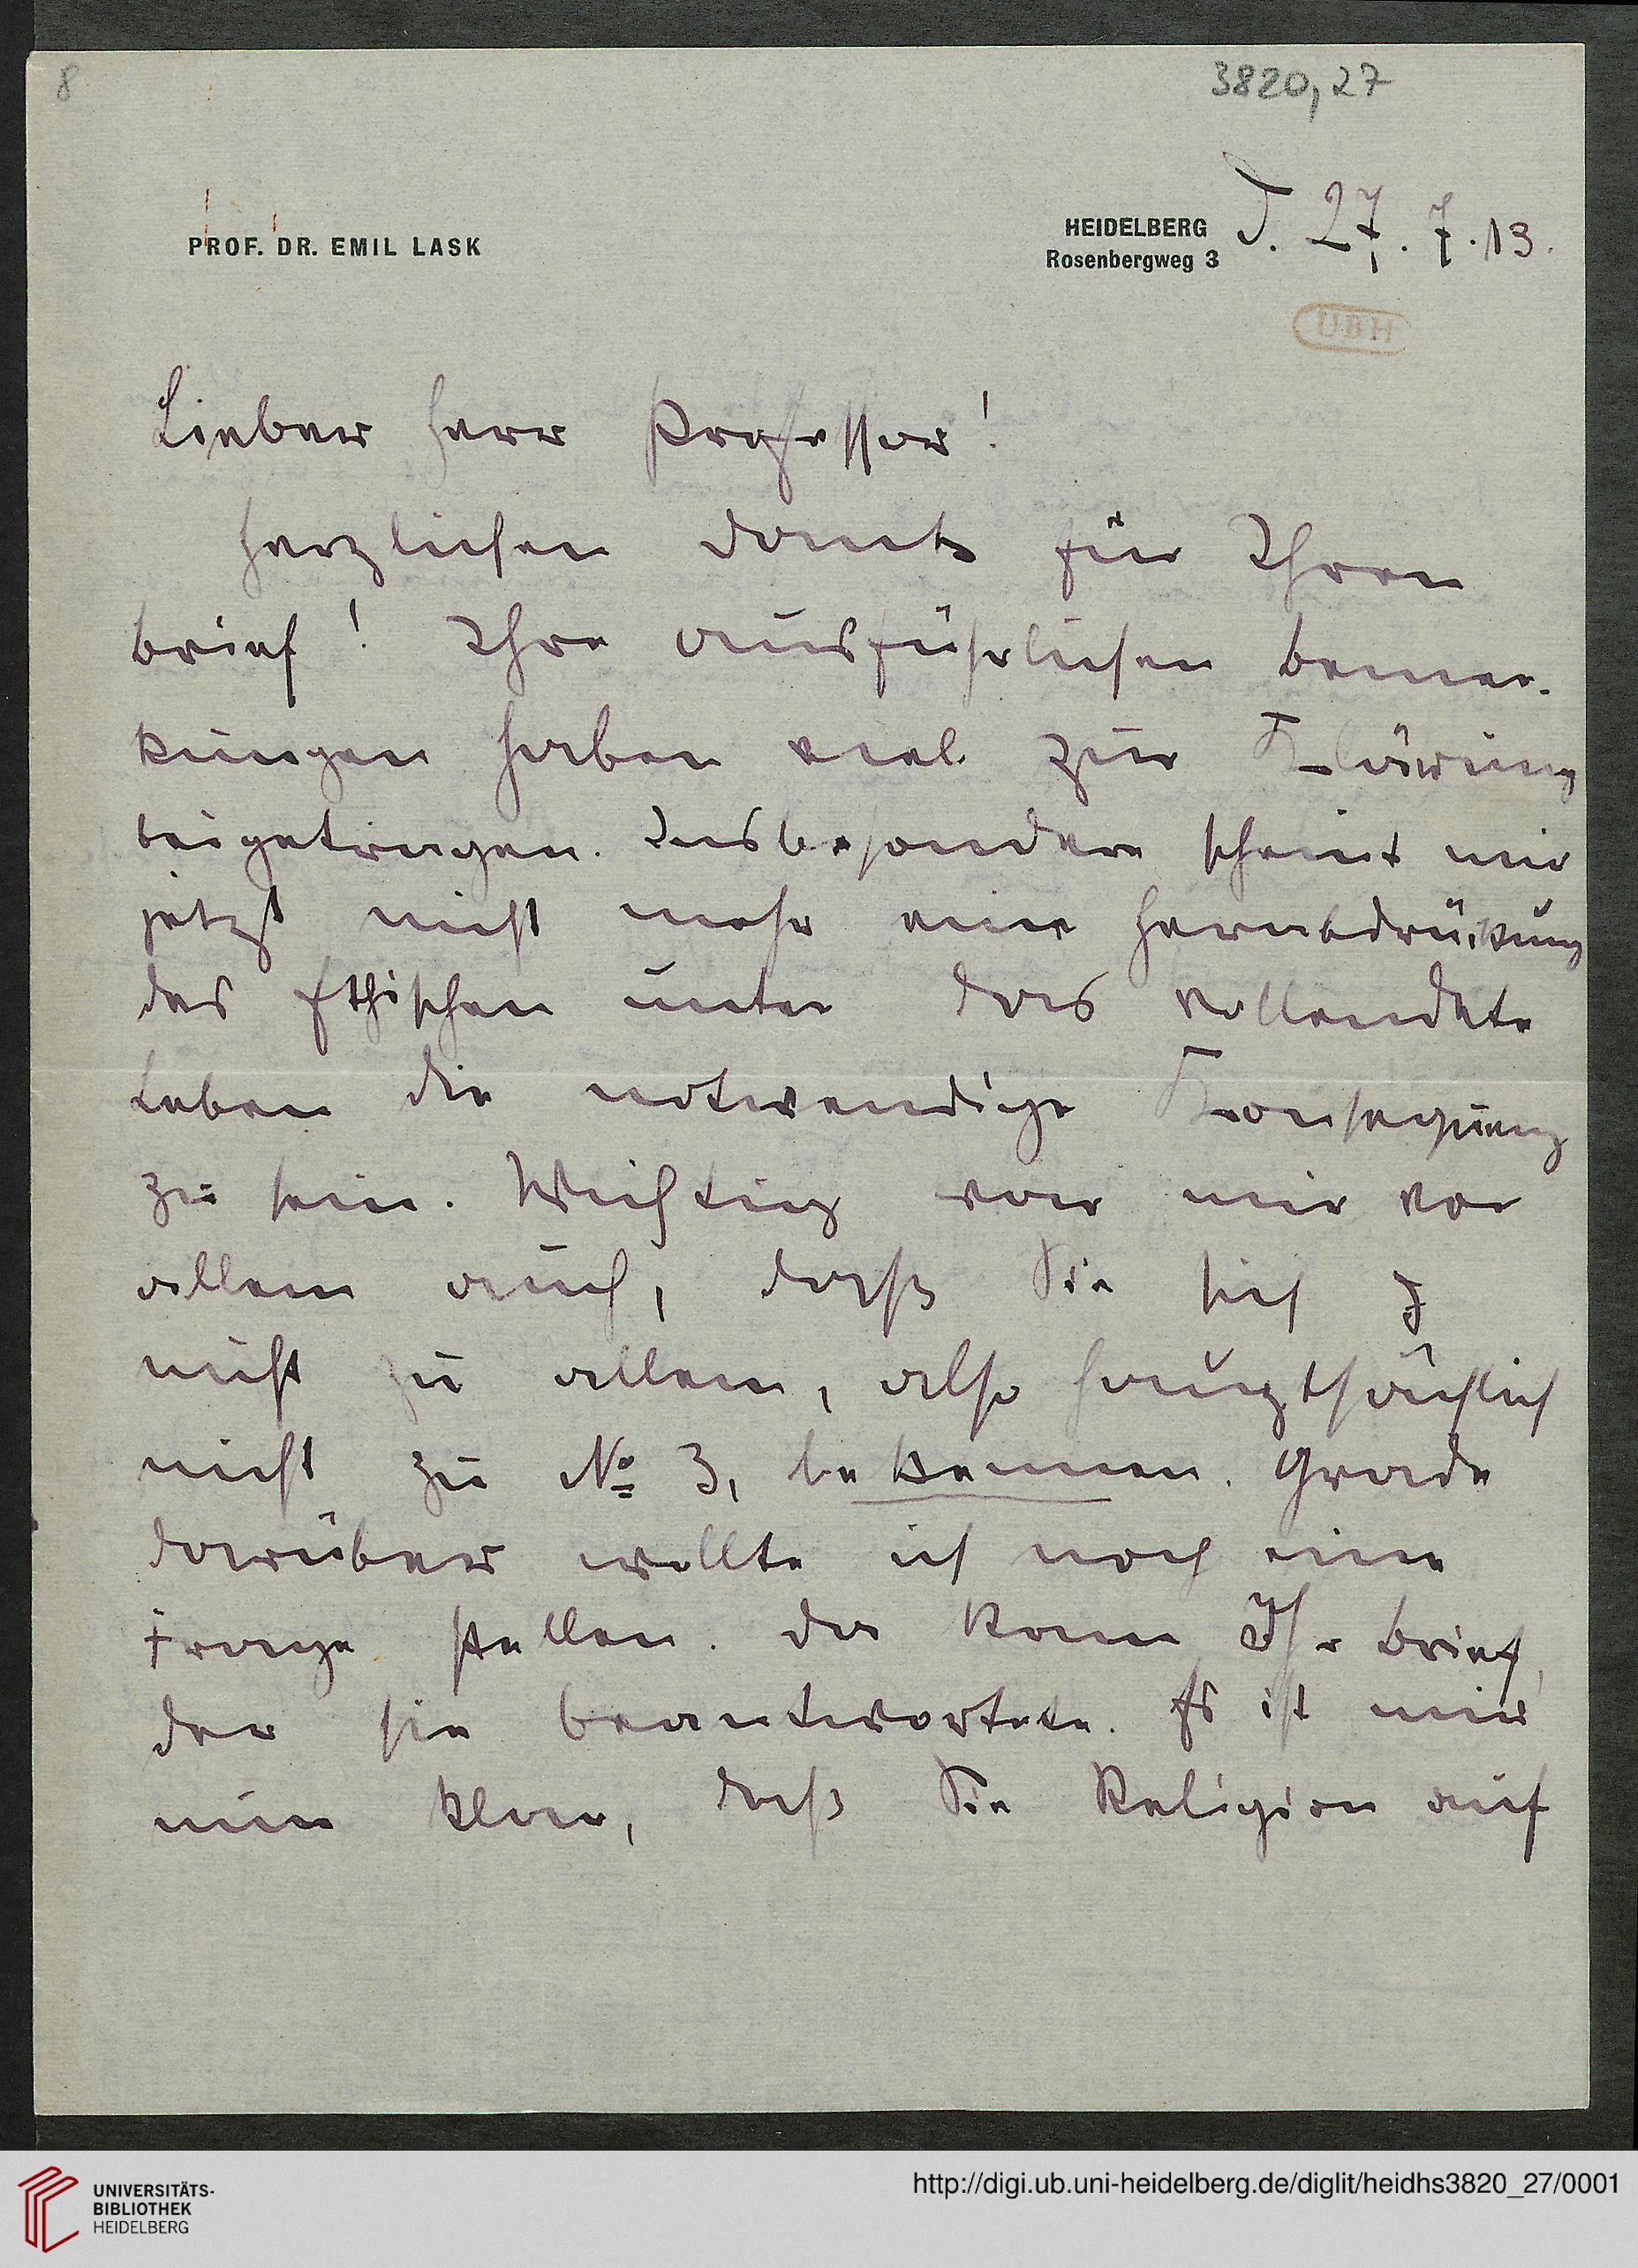 8
3820,27
PROF. DR. EMIL LASK
HEIDELBERG
Rosenbergweg 3
D. 27. 7. 13.
UBH
Lieber Herr Professor!
Herzlichen Dank für Ihren
Brief! Ihre ausführlichen Bemer-
kungen haben viel zur Klärung
beigetragen. Insbesondere scheint mir
jetzt nicht mehr eine Herabdrückung
des Ethischen unter das vollendete
Leben die notwendige Konsequenz
zu sein. Wichtig war mir vor
allem auch, daß Sie sich
nicht zu allem, also hauptsächlich
nicht zu No 3, bekennen. Grade
darüber wollte ich noch eine
Frage stellen. Da kam Ihr Brief,
der sie beantwortete. Es ist mir
nun klar, daß Sie Religion auf
UNIVERSITÄTS-
BIBLIOTHEK
HEIDELBERG
http://digi.ub.uni-heidelberg.de/diglit/heidhs3820_27/0001